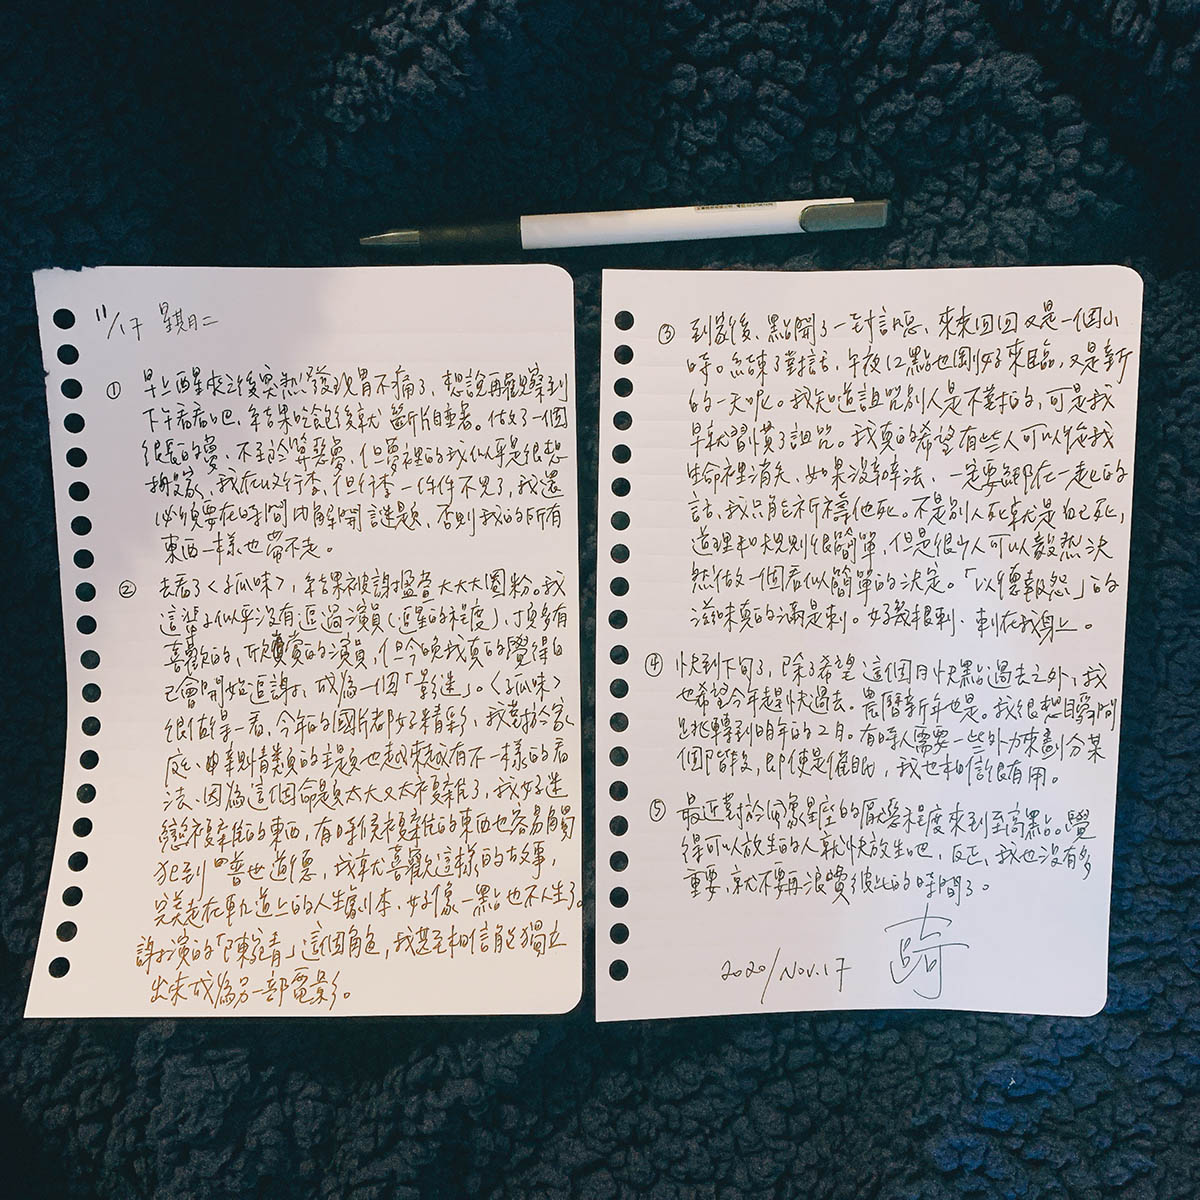 11/17 星期二
① 早上醒來之後突然發現胃不痛了，想說再觀察到
下午看看吧，結果吃飽後就斷片睡著。做了一個
很長的夢，不至於算惡夢，但夢裡的我似乎是很想
搬家，我在收行李，但行李一件件不見了，我還
必須要在時間內解開謎題，否則我的所有
東西一樣也帶不走。
② 去看了〈孤味〉，結果被謝盈萱大大大圈粉。我
這輩子似乎沒有追過演員（追星的程度），頂多有
喜歡的，欣賞的演員，但今晚我真的覺得自
己會開始追謝，成為一個「影迷」。〈孤味〉
很值得一看，今年的國片都好精彩，我對於家
庭、專情類的主題也越來越有不一樣的看
法、因為這個命題太大又太複雜了，我好迷
戀複雜的東西，有時候複雜的東西也容易觸
犯到普世道德，我就喜歡這樣的故事，
完美走在軌道上的人生劇本，好像一點也不人生了。
謝演的「陳婉青」這個角色，我甚至相信能獨立
出來成為另一部電影。
③ 到家後、點開了一封訊息、來來回回又是一個小
時。結束了對話，午夜12點也剛好來臨，又是新
的一天呢。我知道詛咒別人是不對的，可是我
早就習慣了詛咒。我真的希望有些人可以從我
生命裡消失、如果沒辦法、一定要綁在一起的
話、我只能祈禱他死。不是別人死就是自己死，
道理和規則很簡單，但是很少人可以毅然決
然做一個看似簡單的決定。「以德報怨」的
滋味真的滿是刺。好幾根刺、刺在我身上。
④ 快到下旬了，除了希望這個月快點過去之外，我
也希望今年趕快過去。農曆新年也是。我很想瞬間
跳轉到明年的2月。有時人需要一些外力來劃分某
個階段，即使是催眠，我也相信很有用。
⑤ 最近對於個象星座的厭惡程度來到至高點。覺
得可以放生的人就快放生吧，反正、我也沒有多
重要、就不要再浪費彼此的時間了。
2020/Nov.17